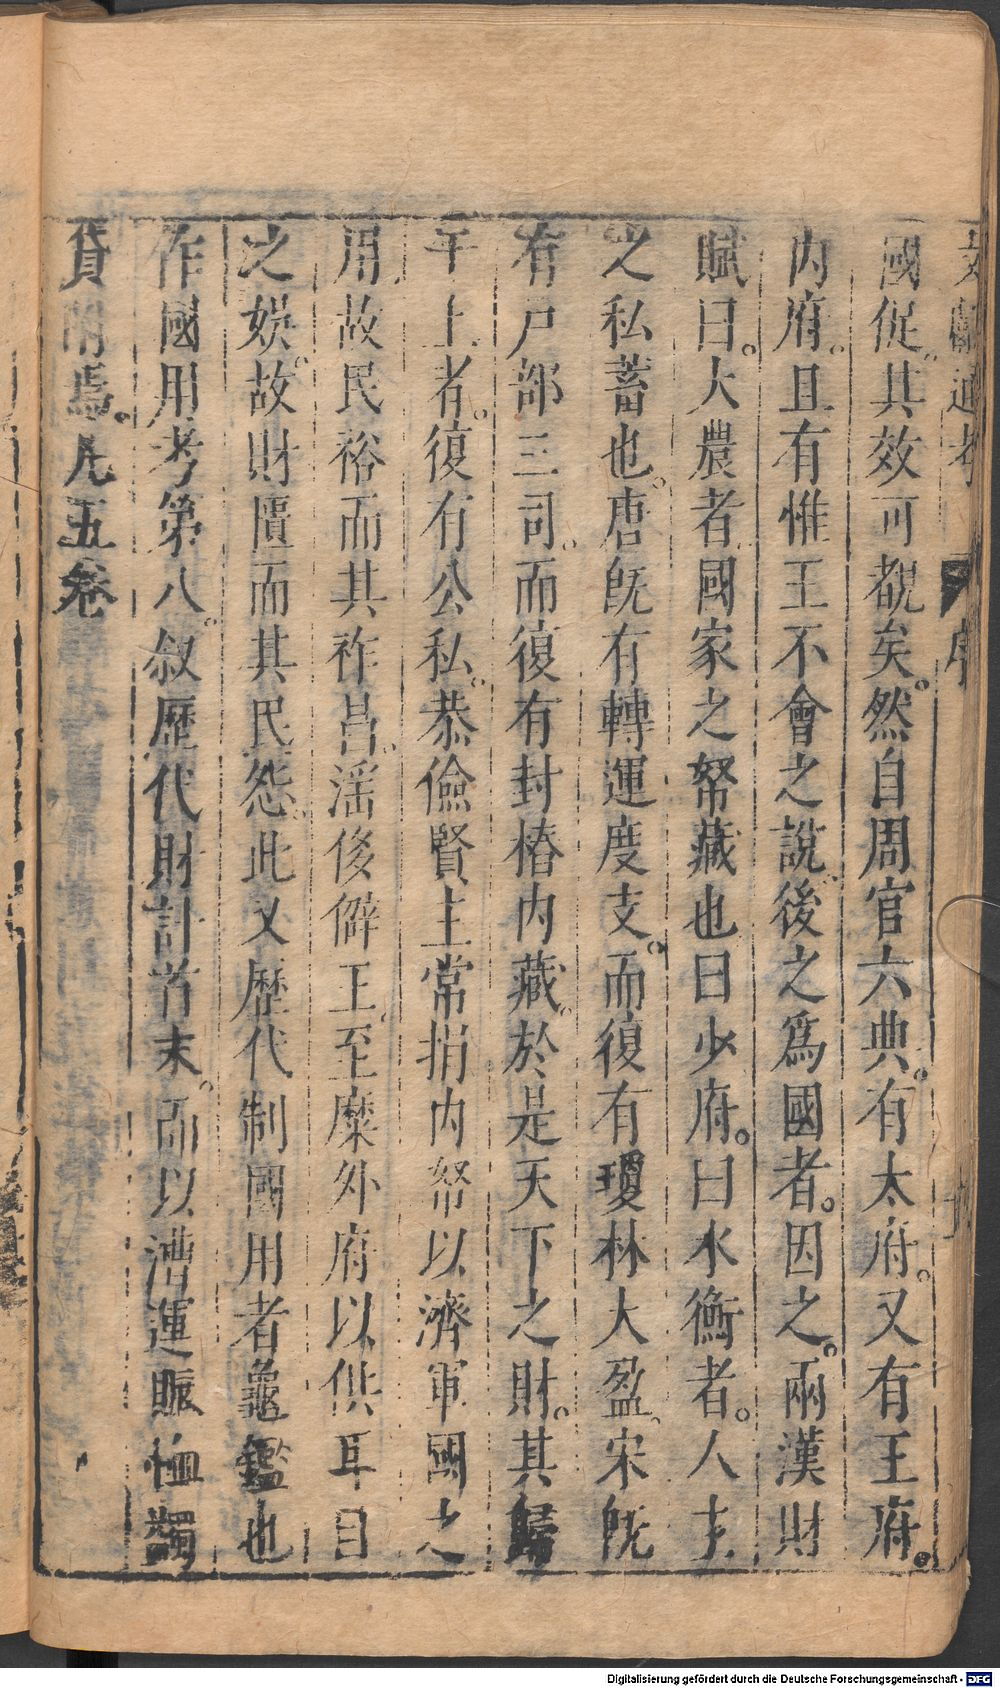 文獻通考 序
國促。其效可覩矣。然自周官六典。有太府。又有王府。
內府。且有惟王不會之說。後之爲國者。因之。兩漢財
賦曰。大農者。國家之帑藏也。曰少府。曰水衡者。人主
之私蓄也。唐旣有轉運度支。而復有瓊林大盈。宋旣
有戶部三司。而復有封樁內藏。於是天下之財。其歸
于上者。復有公私。恭儉賢主。常捐內帑以濟軍國之
用。故民裕而其祚昌。滛侈僻王。至糜外府以供耳目
之娛。故財匱而其民怨。此又歷代制國用者龜鑑也
作國用考第八。叙歷代財計首末。而以漕運賑恤蠲
貸附焉。凡五卷
Digitalisierung gefördert durch die Deutsche Forschungsgemeinschaft - DFG